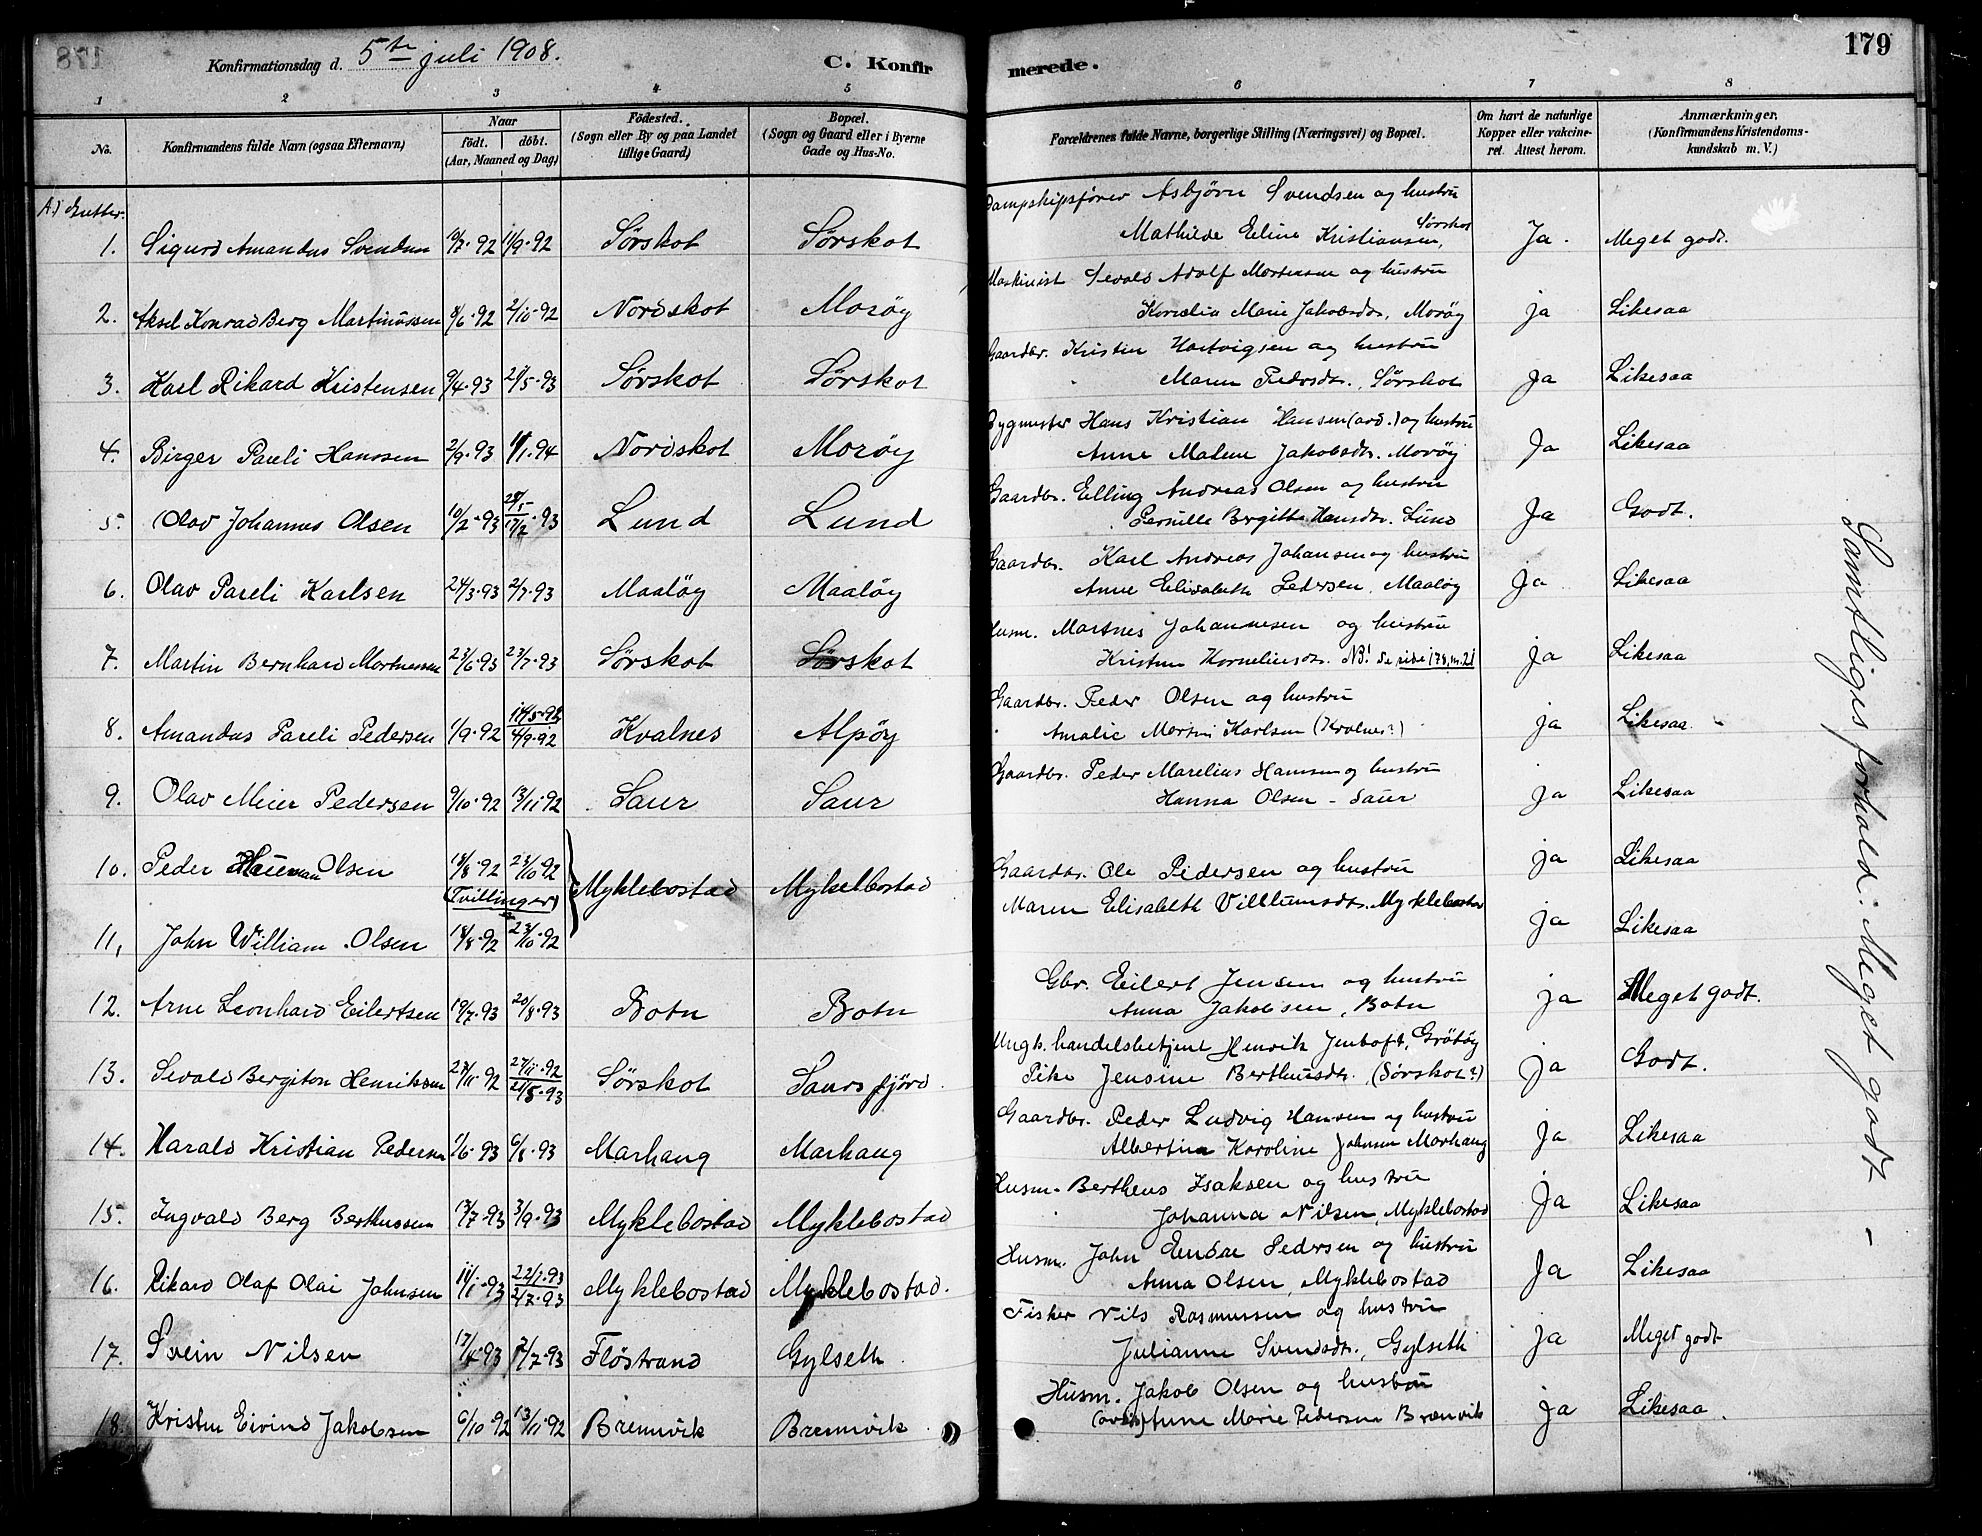 178
Konfirmationsdag d. 5te juli 1908.
C. Konfirmerede.
179
1 2 3 4 5 6 7 8
No.
Konfirmandens fulde Navn (ogsaa Efternavn)
Naar
födt. döbt.
(Aar, Maaned og Dag)
Födested.
(Sogn eller By og paa Landet
tillige Gaard)
Bopæl.
(Sogn og Gaard eller i Byerne
Gade og Hus-No.
Forældrenes fulde Navne, borgerlige Stilling (Næringsvei) og Bopæl.
Om havt de naturlige
Kopper eller vakcine-
ret. Attest herom.
Anmærkninger,
(Konfirmandens Kristendoms-
kundskab m. V.)
A) Gutter.
Dampskipsfører Asbjørn Svendsen og hustru
1. Sigurd Amandus Svendsen 10/7·92 11/9·92 Sørskot Sørskot Mathilde Eline Kristiansen, Sørskot Ja. Meget godt.
Maskinist Sevald Adolf Mortensen og hustru
2. Aksel Konrad Berg Martinussen 8/6·92 2/10·92 Nordskot Morøy Kornelia Marie Jakobsdr., Morøy ja Likesaa
Gaardbr. Kristen Hartvigsen og hustru
3. Karl Rikard Kristensen 9/4·93 21/5·93 Sørskot Sørskot Maren Pedersdr., Sørskot Ja Likesaa
Hans Kristian Hansen og hustru
4. Birger Pareli Hanssen 2/9·93 1/1·94 Nordskot Morøy Anne Malene Jakobsdr. Morøy Ja Likesaa
Gaardbr. Elling Andreas Olsen og hustru
5. Olav Johannes Olsen 10/2·93 17/2·93 Lund Lund Pernille Bergitte Hansdr. Lund Ja Godt.
Gaardbr. Karl Andreas Johansen og hustru
6. Olav Pareli Karlsen 24/3·93 2/7·93 Maaløy Maaløy Anne Elisabeth Pedersen, Maaløy Ja Likesaa
Husm. Martnes Johannesen og hustru
7. Martin Bernhard Mortnessen 23/6·93 23/7·93 Sørskot Sørskot Kristine Korneliusdr. NB! Se side 178, nr. 21 ja Likesaa
Gaardbr. Peder Olsen og hustru
8. Amandus Pareli Pedersen 1/9·92 4/9·92 Kvalnes Alpøy Amalie Karlsen (Kvalnes?) ja Likesaa
Gaardbr. Peder Marelius Hansen og hustru
9. Olav Meier Pedersen 9/10·92 13/11·92 Saur Saur Hanna Olsen - Saur ja Likesaa
10. Peder Olsen 18/8·92 23/10·92 ja Likesaa
(Tvillinger) Myklebostad Mykelbostad Gaardbr. Ole Pedersen og hustru
Maren Elisabeth Villumsdr. Myklebostad
11, John William Olsen 18/8·92 23/10·92 ja Likesaa
Gbr. Eilert Jensen og hustru
12. Arne Leonhard Eilertsen 19/7·93 20/8·93 Botn Botn Anna Jakobsen, Botn ja Meget godt.
Ungk. handelsbetjent Henrik Jentoft, Grötöy
13. Sevald Bergiton Henriksen 27/11·92 27/11·92 21/5·93 Sørskot Saursfjörd. Pike Jensine Berthusdr. (Sørskot?) ja Godt.
Gaardbr. Peder Ludvig Hansen og hustru
14. Harald Kristian Pedersen 1/6·93 6/8·93 Marhaug Marhaug Albertina Karoline Johnsen Marhaug Ja Likesaa
Husm. Bertheus Isaksen og hustru
15. Ingvald Berg Berthussen 13/7·93 3/9·93 Myklebostad Myklebostad Johanna Nilsen, Myklebostad Ja Likesaa
Husm. John Endre Pedersen og hustru
16. Rikard Olaf Olai Johnsen 11/1·93 22/1·93 2/7·93 Myklebostad Myklebostad. Anna Olsen, Myklebostad Ja Likesaa
Fisker Nils Rasmussen og hustru
17. Svein Nilsen 17/4·93 2/7·93 Flöstrand Gylseth Julianne Svendsdr., Gylseth Ja Meget godt
Husm. Jakob Olsen og hustru
18. Kristen Eivind Jakobsen 6/10·92 13/11·92 Bremvik Bremvik Anne Marie Pedersen Brænvik Ja Likesaa.
Samtliges forhold: Meget godt. -